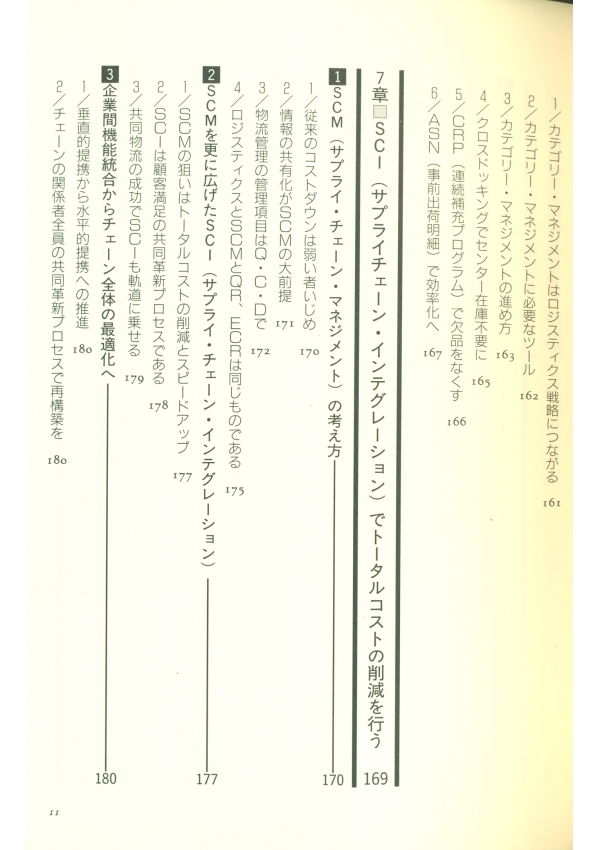 1/カテゴリー・マネジメントはロジスティクス戦略につながる 161
2/カテゴリー・マネジメントに必要なツール 162
3/カテゴリー・マネジメントの進め方 163
4/クロスドッキングでセンター在庫不要に 165
5/CRP（連続補充プログラム）で欠品をなくす 166
6/ASN（事前出荷明細）で効率化へ 167
7章□SCI（サプライチェーン・インテグレーション）でトータルコストの削減を行う 169
1 SCM（サプライ・チェーン・マネジメント）の考え方 170
1/従来のコストダウンは弱い者いじめ 170
2/情報の共有化がSCMの大前提 171
3/物流管理の管理項目はQ・C・Dで 172
4/ロジスティクスとSCMとQR、ECRは同じものである 175
2 SCMを更に広げたSCI（サプライ・チェーン・インテグレーション） 177
1/SCMの狙いはトータルコストの削減とスピードアップ 177
2/SCIは顧客満足の共同革新プロセスである 178
3/共同物流の成功でSCIも軌道に乗せる 179
3 企業間機能統合からチェーン全体の最適化へ 180
1/垂直的提携から水平的提携への推進 180
2/チェーンの関係者全員の共同革新プロセスで再構築を 180
11